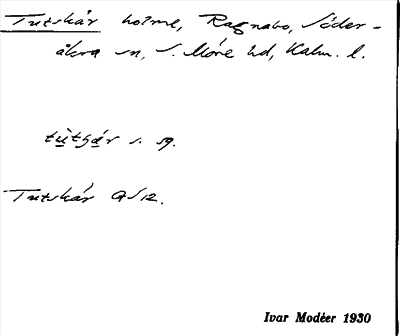 Tutskär holme, Ragnabo, Söder-
åkra sn, S. Möre hd, Kalm. l.
Tutskär GS12.
Ivar Modéer 1930